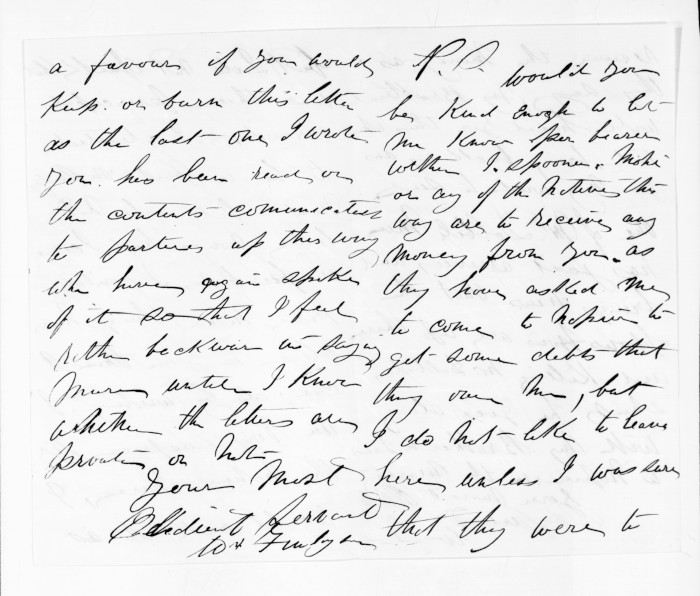 a favour if you would
Keep. or burn this letter
as the last one I wrote
you. has been read or
the contents comunicated
to parties up this way
who have again spoke
of it so that I feel
rather backwar in saying
more until I know
whether the letters are
private or not
Your Most
Obedient Servant
Wm Finlayson
P.S. would you
be Kind enough to let
me Know per bearer
wether I. spooner. Mohi
or any of the Natives this
way are to receive any
money from you. as
they have asked me
to come to Napier to
get some debts that
they owe me, but
I do not like to leave
here unless I was sure
that they were to